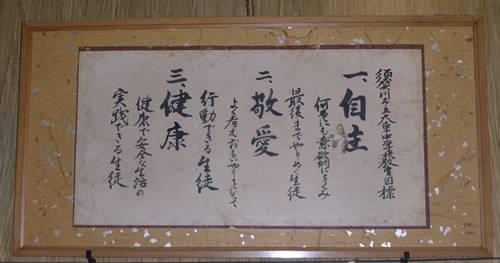 須賀川市立大東中学校教育目標
一、自主
何事にも意欲的にとりくみ
最後までやりぬく生徒
二、敬愛
よく考えおもいやりをもって
行動できる生徒
三、健康
健康で安全な生活の
実践できる生徒